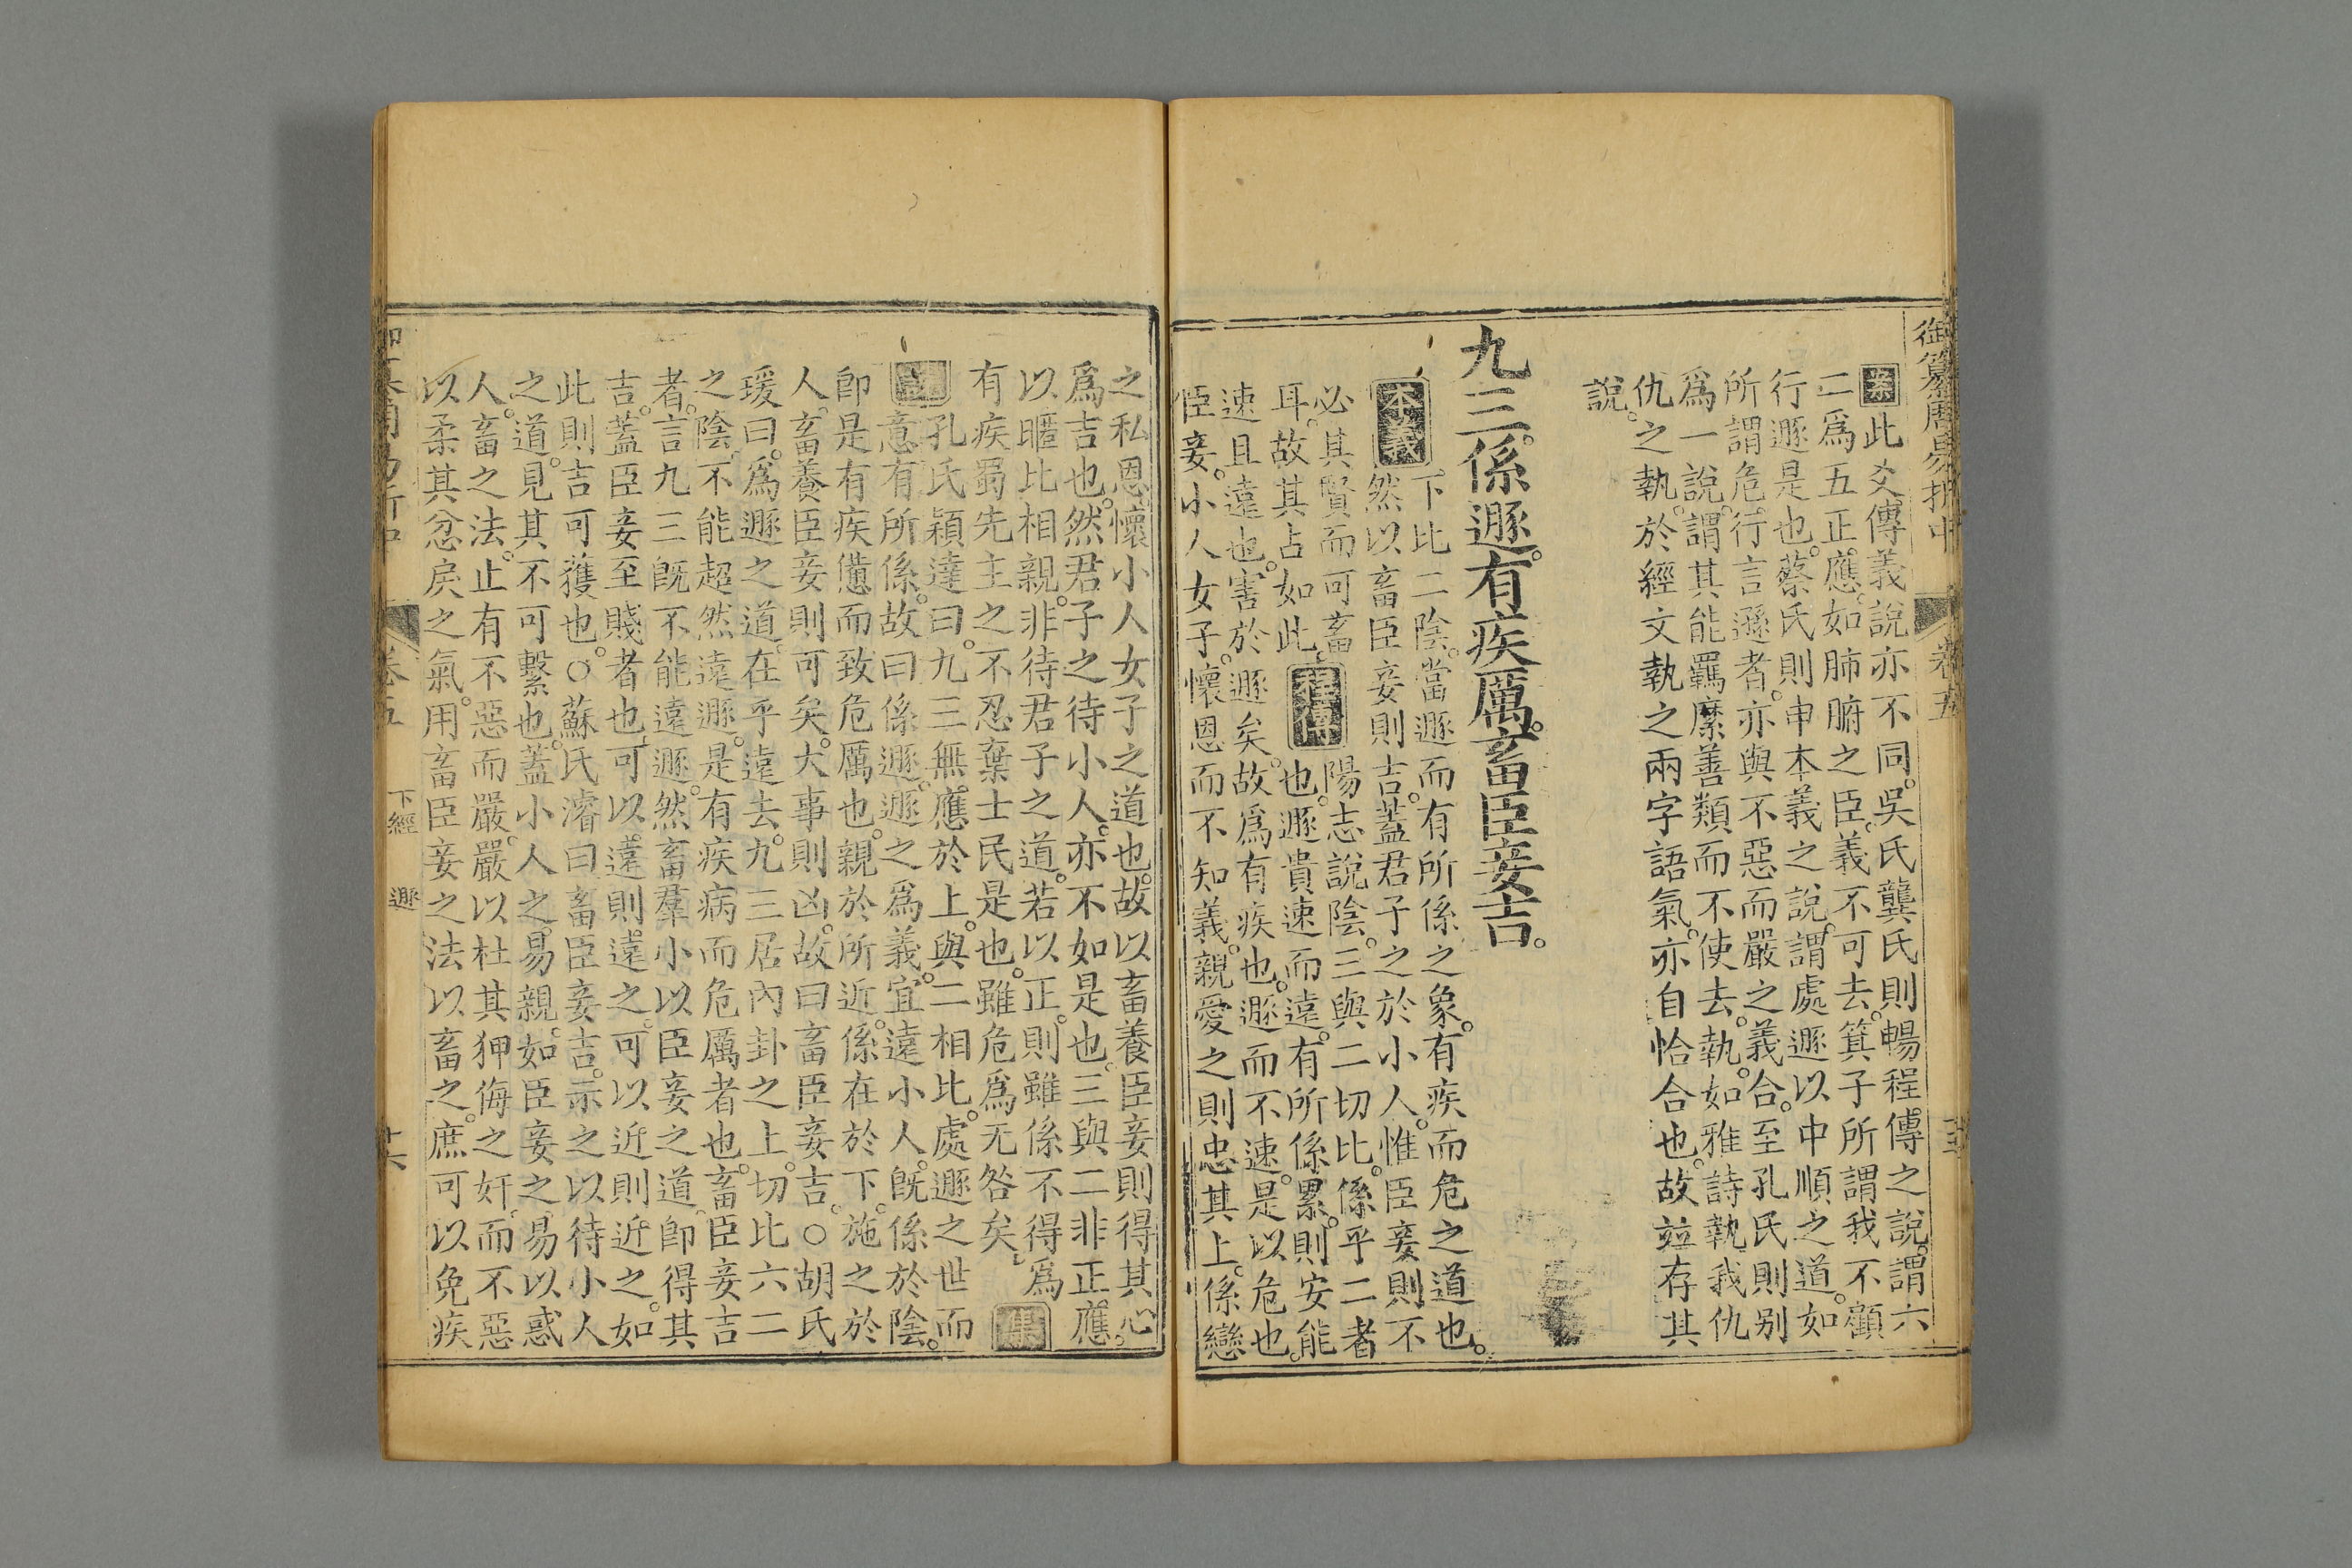 御纂周易折中
卷五
案此爻傳義說亦不同。吳氏龔氏則暢程傳之說。謂六
二爲五正應。如肺腑之臣。義不可去。箕子所謂我不顧
行遯是也。蔡氏則申本義之說。謂處遯以中順之道。如
所謂危行言遜者。亦與不惡而嚴之義合。至孔氏則別
爲一說。謂其能羈縻善類而不使去。執如雅詩執我仇
仇之執。於經文執之兩字語氣。亦自恰合也。故並存其
說。
九三。係遯。有疾厲。畜臣妾吉。
本義
下比二陰。當遯而有所係之象。有疾而危之道也。
然以畜臣妾則吉。蓋君子之於小人。惟臣妾則不
必其賢而可畜
耳。故其占如此。
程傳
陽志說陰。三與二切比。係乎二者
也。遯貴速而遠。有所係累。則安能
速且遠也。害於遯矣。故爲有疾也。遯而不速。是以危也。
臣妾。小人女子。懷恩而不知義。親愛之則忠其上。係戀
之私恩。懷小人女子之道也。故以畜養臣妾則得其心
爲吉也。然君子之待小人。亦不如是也。三與二非正應。
以暱比相親。非待君子之道。若以正。則雖係不得爲
有疾。蜀先主之不忍棄士民是也。雖危爲无咎矣。
集
孔氏穎達曰。九三無應於上。與二相比。處遯之世而
意有所係。故曰係遯。遯之爲義。宜遠小人。旣係於陰。
卽是有疾憊而致危厲也。親於所近。係在於下。施之於
人。畜養臣妾則可矣。大事則凶。故曰畜臣妾吉。○胡氏
瑗曰。爲遯之道。在乎遠去。九三居內卦之上。切比六二
之陰。不能超然遠遯。是有疾病而危厲者也。畜臣妾吉
者。言九三旣不能遠遯。然畜羣小以臣妾之道。卽得其
吉。蓋臣妾至賤者也。可以遠則遠之。可以近則近之。如
此則吉可獲也。○蘇氏濬曰。畜臣妾吉。示之以待小人
之道。見其不可繫也。蓋小人之易親。如臣妾之易以惑
人。畜之之法。止有不惡而嚴。嚴以杜其狎侮之奸。而不惡
以柔其忿戾之氣。用畜臣妾之法以畜之。庶可以免疾
卷五
下經
遯